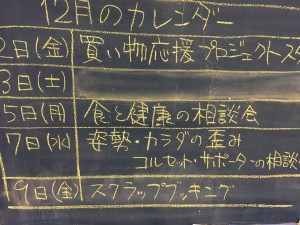 12月のカレンダー
2日(金) 買い物応援プロジェクトスタ
3日(土)
5日(月) 食と健康の相談会
7日(水) 姿勢・カラダの歪み
コルセット・サポーターの相談
9日(金) スクラップブッキング